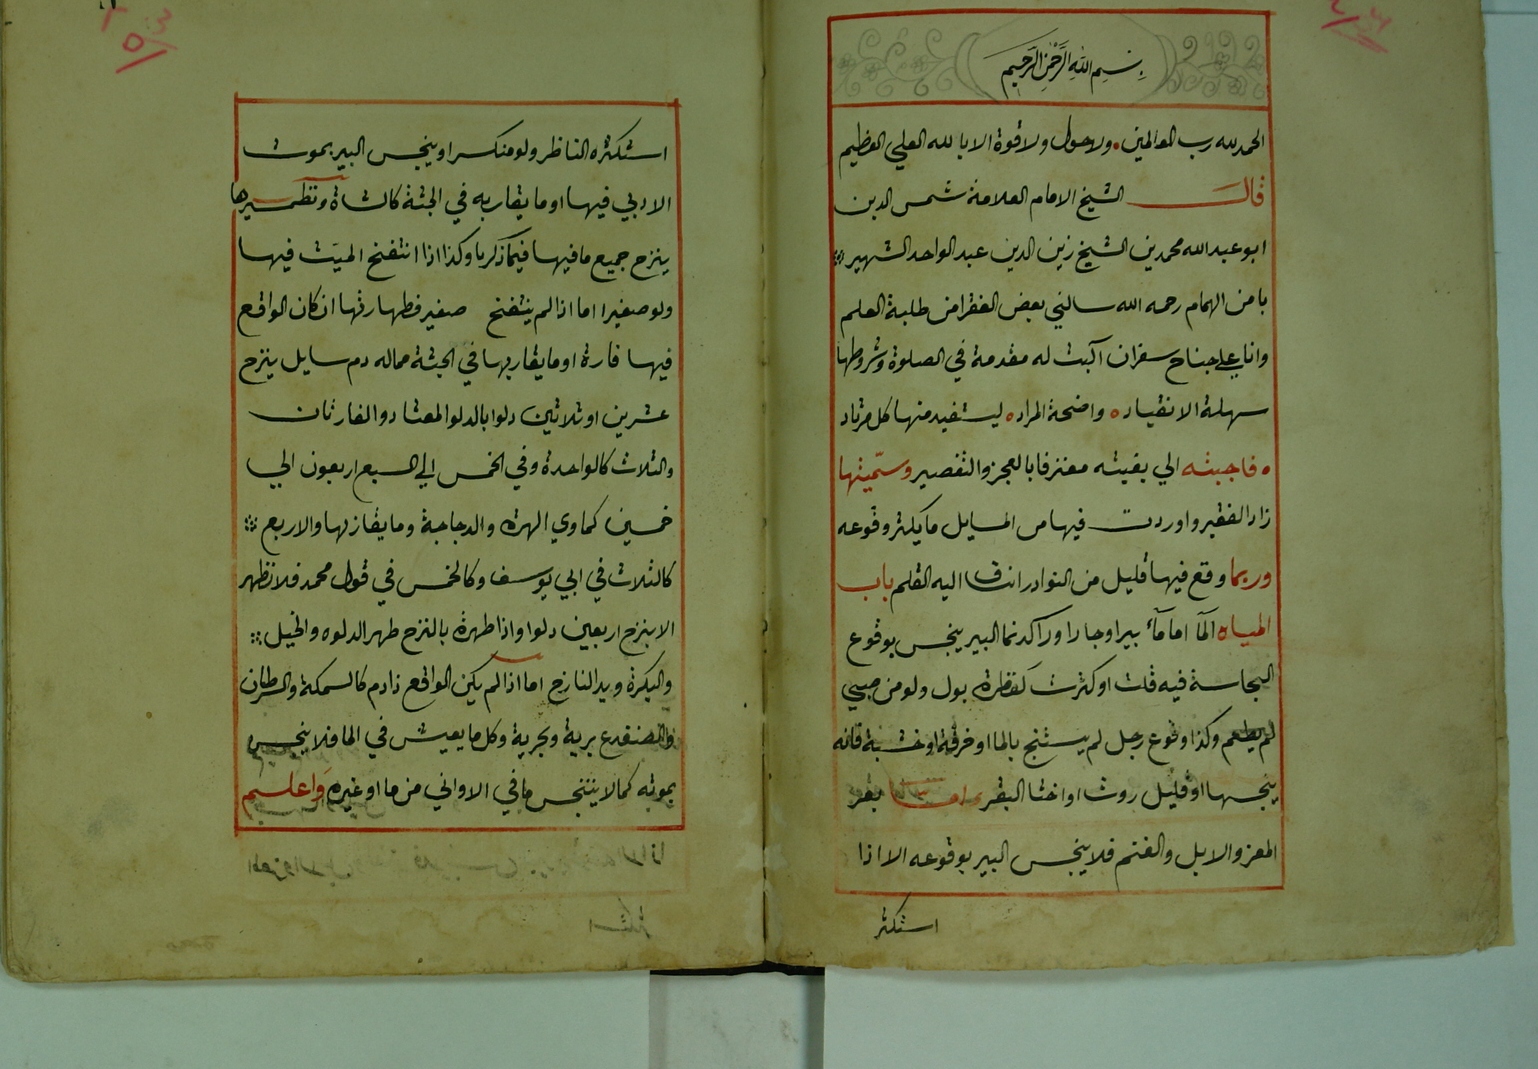 بسم الله الرحمن الرحيم
الحمد لله رب العالمين ولا حول ولا قوة الا بالله العلي العظيم
قال الشيخ الامام العلامة شمس الدين
ابو عبد الله محمد بن الشيخ زين الدين عبد الواحد الشهير
بابن الهمام رحمه الله سالني بعض الفقرا من طلبة العلم
وانا علي جناح سفر ان اكتب له مقدمة في الصلوة وشروطها
سهلة الانقياد واضحة المراد ليستفيد منها كل مرتاد
فاجبته الي بغيته معترفا بالعجز والتقصير وسميتها
زاد الفقير واوردت فيها من المسايل ما يكثر وقوعه
وربما وقع فيها قليل من النوادر انساق اليه القلم باب
المياه الما اما مآء بير او جار او راكد فما البير ينجس بوقوع
النجاسة فيه قلت او كثرت كقطرة بول ولو من صبي
لم يطعم وكذا وقوع رجل لم يستنج بالما او خرقة او خشبة فانه
ينجسها او قليل روث او اخثا البقر اما بعر
المعز والابل والغنم فلا ينجس البير بوقوعه الا اذا
استكثر
استكثره الناظر ولو منكسرا وينجس البير بموت
الادمي فيها او ما يقاربه في الجثة كالشاة وتطهيرها
ينزح جميع ما فيها فيما ذكرنا وكذا اذا انتفخ الميت فيها
ولو صغيرا اما اذا لم ينتفخ صغير فطهارتها ان كان الواقع
فيها فارة او ما يقاربها في الجثة مما له دم سايل ينزح
عشرين او ثلاثين دلوا بالدلو المعتاد والفارتان
والثلاث كالواحدة وفي الخمس الي السبع اربعون الي
خمسين كما في الهرة والدجاجة وما يقاربها والاربع
كالثلاث في ابي يوسف وكالخمس في قول محمد فلا تطهر
الا بنزح اربعين دلوا واذا طهرة بالنزح طهر الدلو والحبل
والبكرة ويد النازح اما اذا لم يكن الواقع ذا دم كالسمكة والسرطان
والضفدع برية وبحرية وكل ما يعيش في الما فلا ينجس
بموته كما لا يتنجس ما في الاواني من ما او غيره واعلم
استكثر